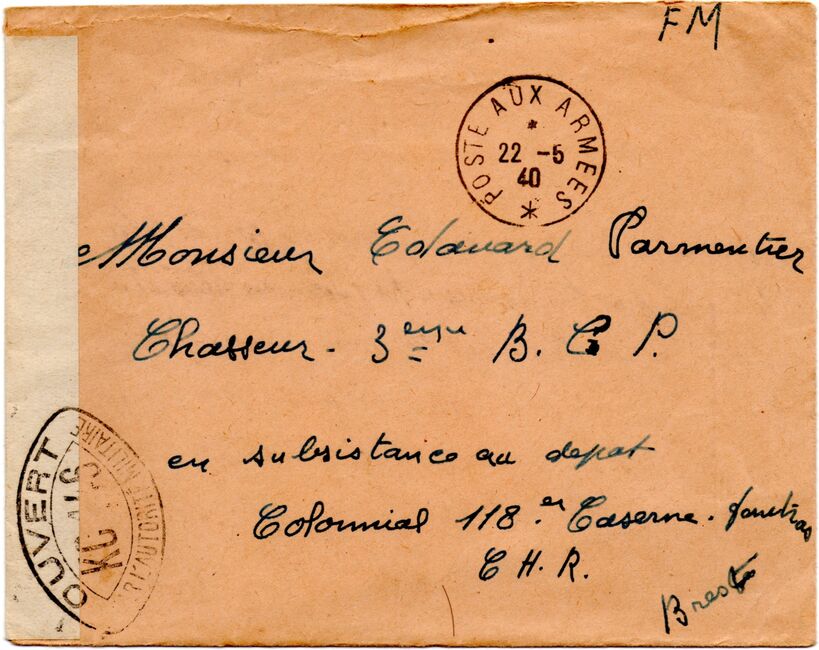 FM
POSTE AUX ARMEES
22 -5
40
Monsieur Edouard Parmentier
Chasseur - 3eme B. C P.
en subsistance au depot
Colonnial 118 er Caserne -
C H. R.
Brest
OUVERT
PAR L'AUTORITÉ MILITAIRE